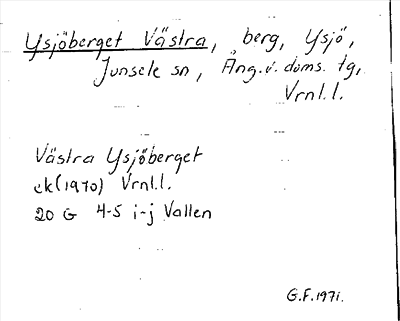 Ysjöberget Västra, berg, Ysjö,
Junsele sn, Ång. v. doms. tg,
Vrnl. l.
Västra Ysjöberget
ek (1970) Vrnl. l.
20 G 4-5 i-j Vallen
G.F. 1971.